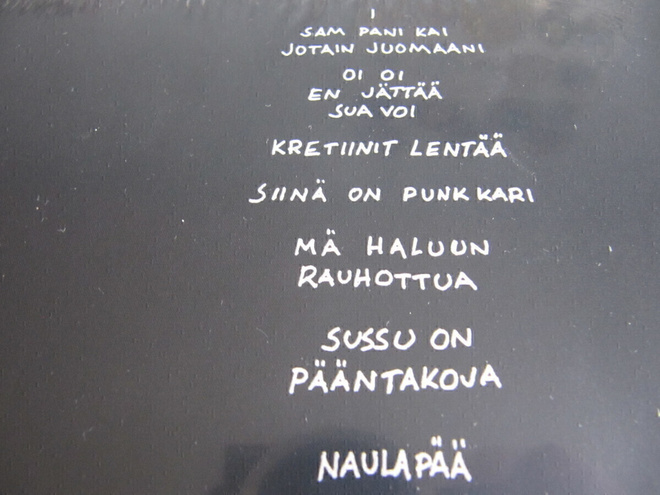 I
SAM PANI KAI
JOTAIN JUOMAANI
OI OI
EN JÄTTÄÄ
SUA VOI
KRETIINIT LENTÄÄ
SIINÄ ON PUNKKARI
MÄ HALUUN
RAUHOTTUA
SUSSU ON
PÄÄNTAKOJA
NAULAPÄÄ